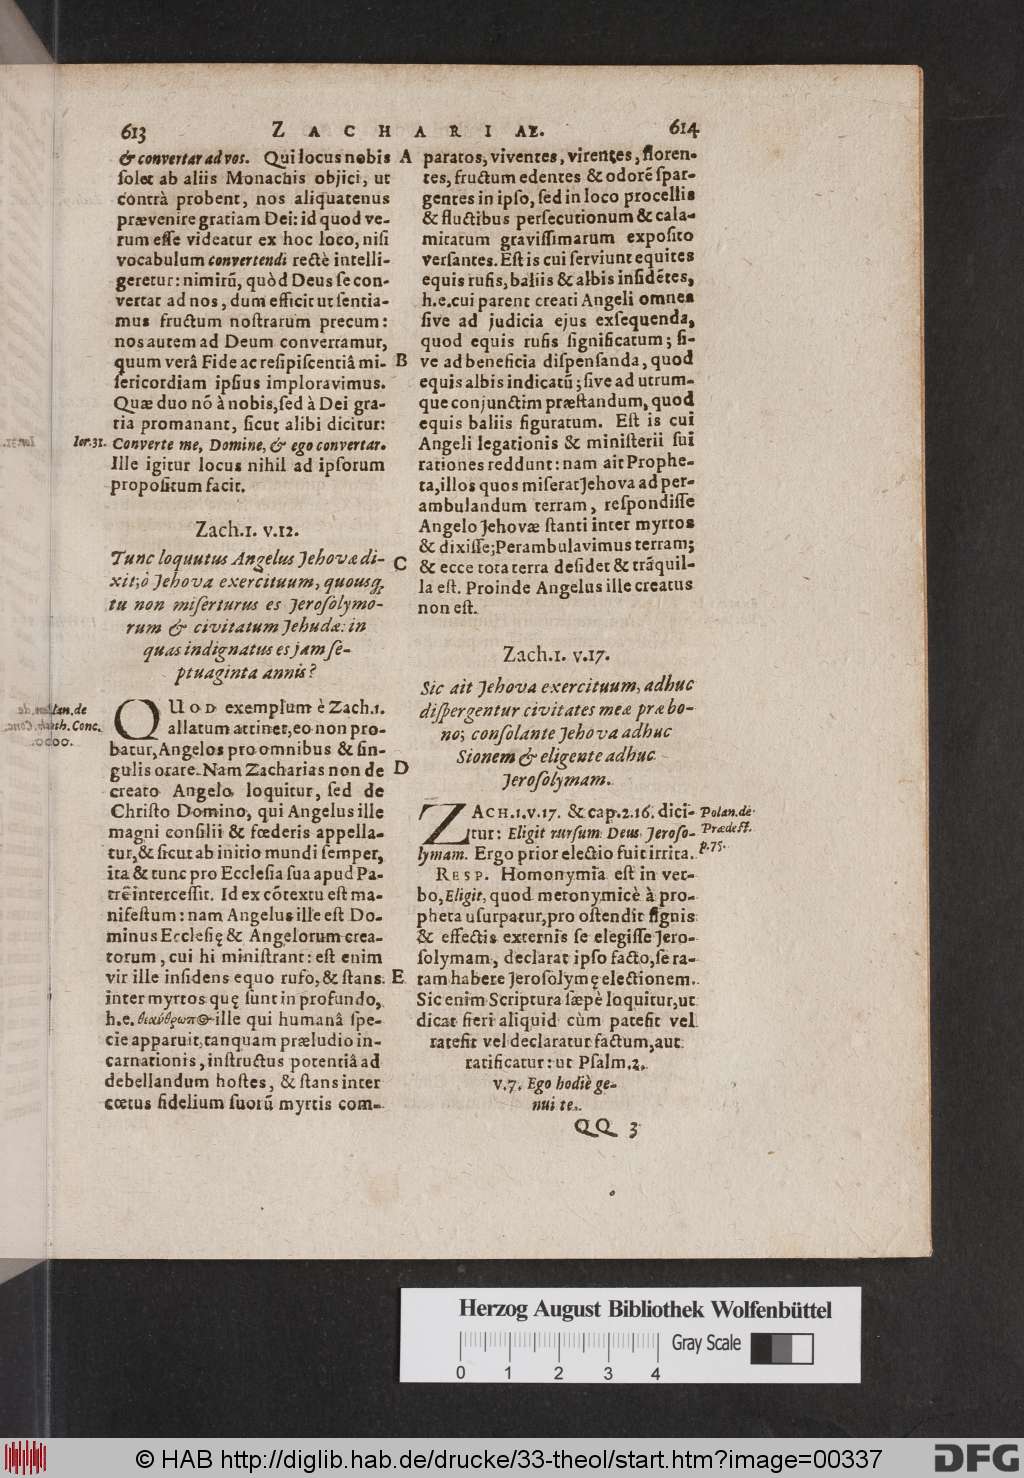 613 ZACHARIAE. 614
& convertar ad vos. Qui locus nobis
solet ab aliis Monachis objici, ut
contrà probent, nos aliquatenus
prævenire gratiam Dei: id quod ve-
rum esse videatur ex hoc loco, nisi
vocabulum convertendi rectè intelli-
geretur: nimirū, quòd Deus se con-
vertat ad nos, dum efficit ut sentia-
mus fructum nostrarum precum:
nos autem ad Deum convertamur,
quum verâ Fide ac resipiscentiâ mi-
sericordiam ipsius imploravimus.
Quæ duo nō à nobis, sed à Dei gra-
tia promanant, sicut alibi dicitur:
Ier. 31.
Converte me, Domine, & ego convertar.
Ille igitur locus nihil ad ipsorum
propositum facit.
Zach. 1. v. 12.
Tunc loquutus Angelus Jehovæ di-
xit; ò Jehova exercituum, quousq;
tu non miserturus es Jerosolymo-
rum & civitatum Jehudæ: in
quas indignatus es jam se-
ptuaginta annis?
QUOD exemplum è Zach. 1.
allatum attinet, eo non pro-
batur, Angelos pro omnibus & sin-
gulis orare. Nam Zacharias non de
creato Angelo loquitur, sed de
Christo Domino, qui Angelus ille
magni consilii & fœderis appella-
tur, & sicut ab initio mundi semper,
ita & tunc pro Ecclesia sua apud Pa-
trē intercessit. Id ex cōtextu est ma-
nifestum: nam Angelus ille est Do-
minus Ecclesię & Angelorum crea-
torum, cui hi ministrant: est enim
vir ille insidens equo rufo, & stans
inter myrtos quę sunt in profundo,
h.e. θεάνθρωπος ille qui humanâ spe-
cie apparuit, tanquam præludio in-
carnationis, instructus potentiâ ad
debellandum hostes, & stans inter
cœtus fidelium suorū myrtis com-
lan. de
th. Conc.
A
B
C
D
E
paratos, viventes, virentes, floren-
tes, fructum edentes & odorē spar-
gentes in ipso, sed in loco procellis
& fluctibus persecutionum & cala-
mitatum gravissimarum exposito
versantes. Est is cui serviunt equites
equis rufis, baliis & albis insidētes,
h.e. cui parent creati Angeli omnes
sive ad judicia ejus exsequenda,
quod equis rufis significatum; si-
ve ad beneficia dispensanda, quod
equis albis indicatū; sive ad utrum-
que conjunctim præstandum, quod
equis baliis figuratum. Est is cui
Angeli legationis & ministerii sui
rationes reddunt: nam ait Prophe-
ta, illos quos miserat Jehova ad per-
ambulandum terram, respondisse
Angelo Jehovæ stanti inter myrtos
& dixisse; Perambulavimus terram;
& ecce tota terra desidet & trāquil-
la est. Proinde Angelus ille creatus
non est.
Zach. 1. v. 17.
Sic ait Jehova exercituum, adhuc
dispergentur civitates meæ præ bo-
no; consolante Jehova adhuc
Sionem & eligente adhuc
Jerosolymam.
ZACH. 1. v. 17. & cap. 2. 16. dici-
tur: Eligit rursum Deus Jeroso-
lymam. Ergo prior electio fuit irrita.
Polan. de
Prædest.
p. 75.
RESP. Homonymia est in ver-
bo, Eligit, quod metonymicè à pro-
pheta usurpatur, pro ostendit signis
& effectis externis se elegisse Jero-
solymam, declarat ipso facto, se ra-
tam habere Jerosolymę electionem.
Sic enim Scriptura sæpè loquitur, ut
dicat fieri aliquid cùm patefit vel
ratefit vel declaratur factum, aut
ratificatur: ut Psalm. 2.
v. 7. Ego hodiè ge-
nui te.
QQ 3
Herzog August Bibliothek Wolfenbüttel
Gray Scale
0 1 2 3 4
© HAB http://diglib.hab.de/drucke/33-theol/start.htm?image=00337
DFG